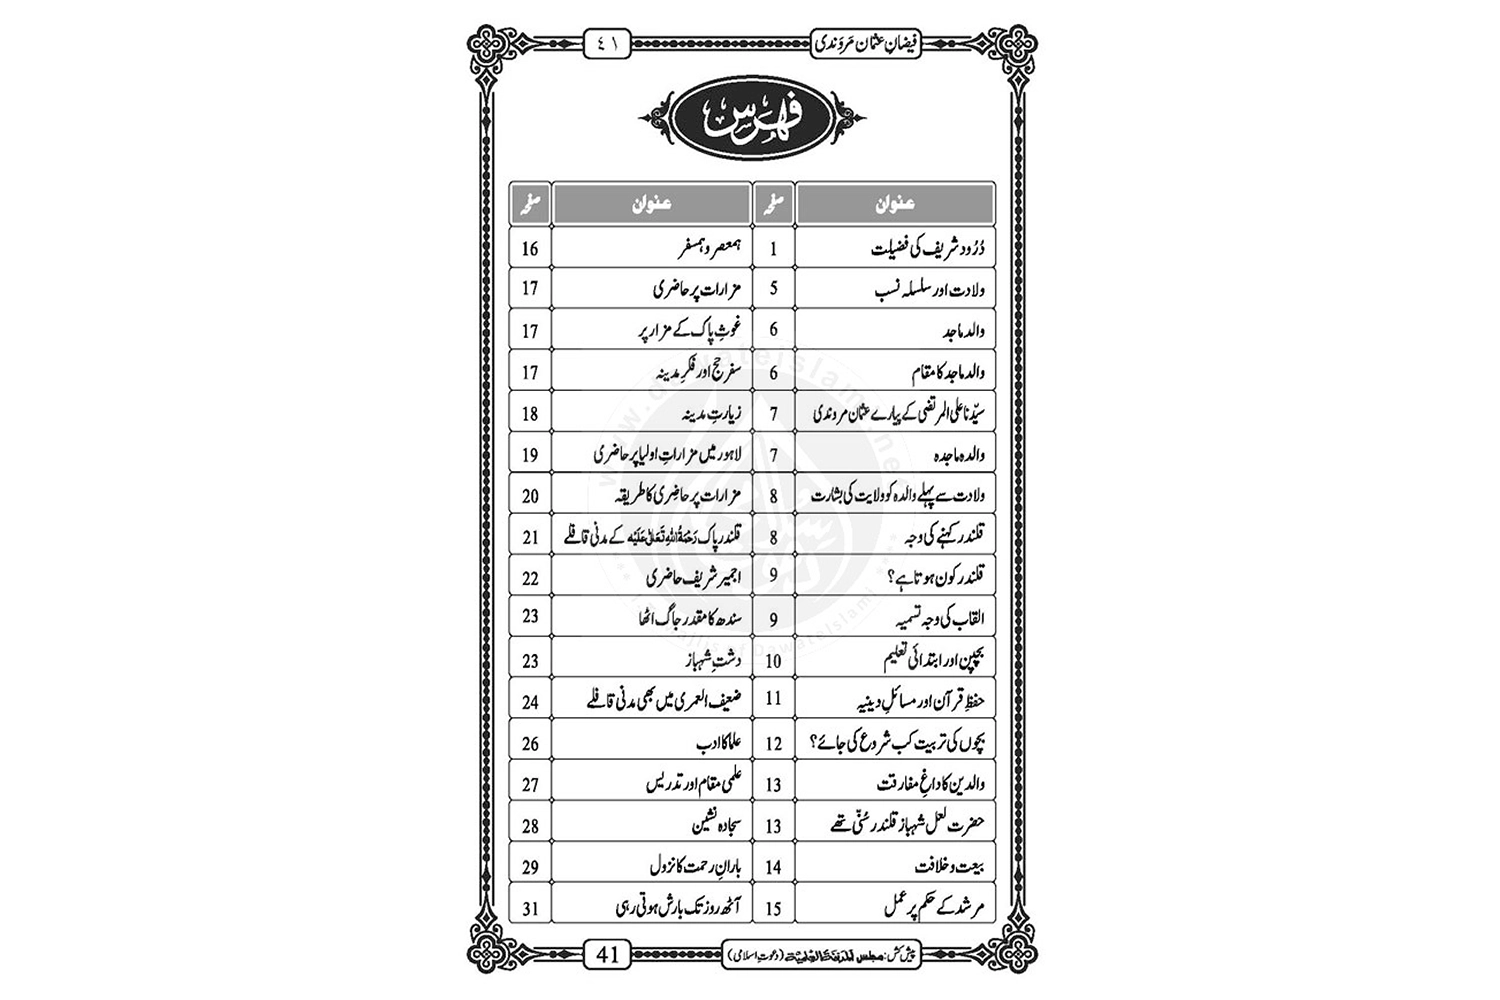 فیضانِ عثمان مَروَندی
٤١
فہرس
عنوان صفحہ عنوان صفحہ
دُرُود شریف کی فضیلت 1 ہمعصر و ہمسفر 16
ولادت اور سلسلہ نسب 5 مزارات پر حاضری 17
والد ماجد 6 غوثِ پاک کے مزار پر 17
والد ماجد کا مقام 6 سفرِ حج اور فکرِ مدینہ 17
سیّدنا علی المرتضی کے پیارے عثمان مروندی 7 زیارتِ مدینہ 18
والدہ ماجدہ 7 لاہور میں مزاراتِ اولیا پر حاضری 19
ولادت سے پہلے والدہ کو ولایت کی بشارت 8 مزارات پر حاضِری کا طریقہ 20
قلندر کہنے کی وجہ 8 قلندر پاک رَحْمَةُ اللهِ تَعَالٰی عَلَيْه کے مدنی قافلے 21
قلندر کون ہوتا ہے؟ 9 اجمیر شریف حاضری 22
القاب کی وجہ تسمیہ 9 سندھ کا مقدر جاگ اٹھا 23
بچپن اور ابتدائی تعلیم 10 دشتِ شہباز 23
حفظِ قرآن اور مسائلِ دینیہ 11 ضعیف العمری میں بھی مدنی قافلے 24
بچوں کی تربیت کب شروع کی جائے؟ 12 علما کا ادب 26
والدین کا داغِ مفارقت 13 علمی مقام اور تدریس 27
حضرت لعل شہباز قلندر سُنّی تھے 13 سجادہ نشین 28
بیعت و خلافت 14 بارانِ رحمت کا نزول 29
مرشد کے حکم پر عمل 15 آٹھ روز تک بارش ہوتی رہی 31
پیش کش: مجلس المدینة العلمیة (دعوتِ اسلامی)
41
www.dawateislami.net